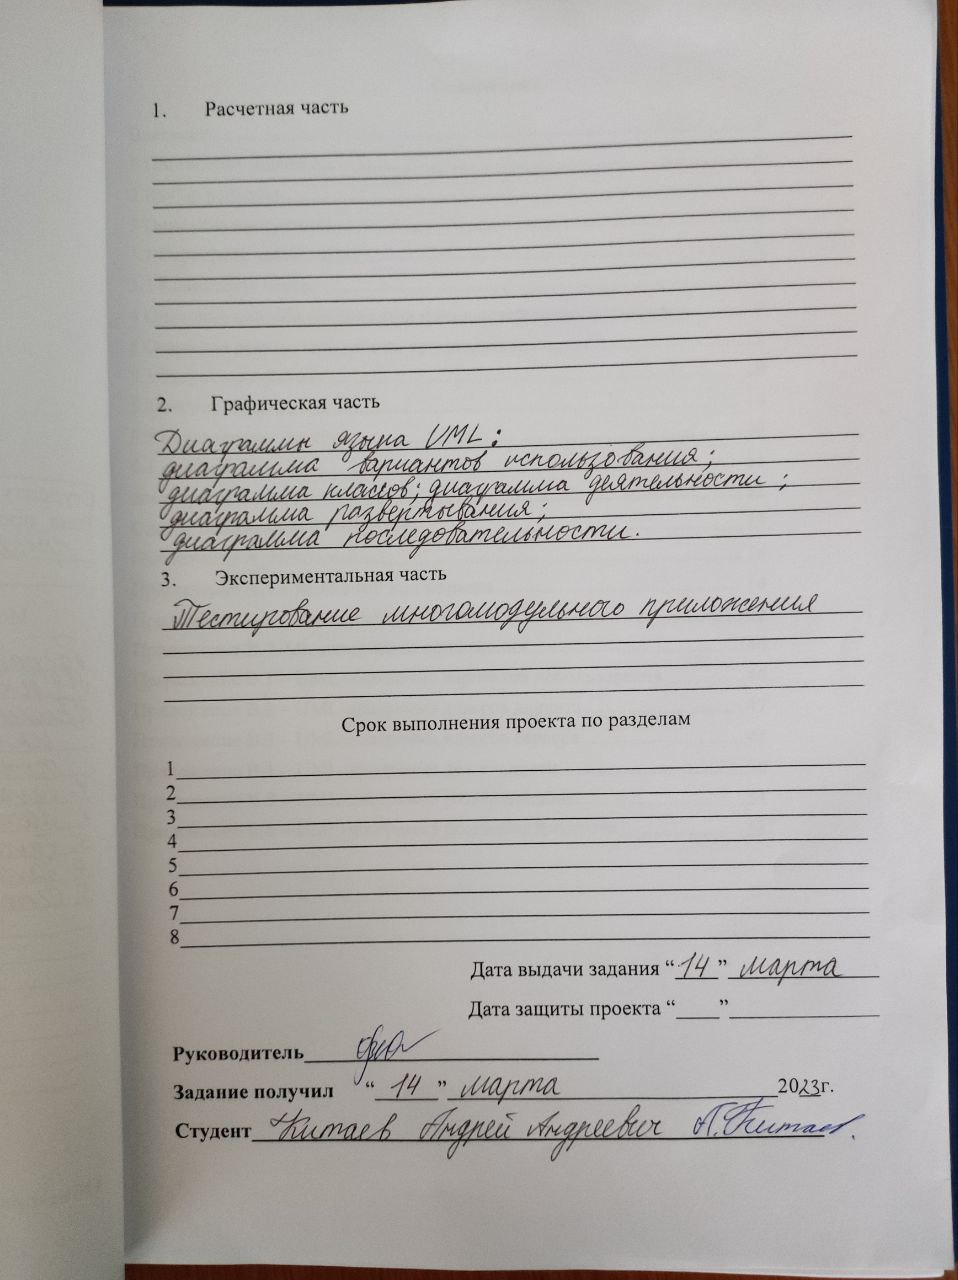 1. Расчетная часть
2. Графическая часть
Диаграммы языка UML:
диаграмма вариантов использования;
диаграмма классов; диаграмма деятельности;
диаграмма развертывания;
диаграмма последовательности.
3. Экспериментальная часть
Тестирование многомодульного приложения
Срок выполнения проекта по разделам
1
2
3
4
5
6
7
8
Дата выдачи задания “14” марта
Дата защиты проекта “____”
Руководитель
Задание получил “14” марта 2023г.
Студент Китаев Андрей Андреевич А.Китаев